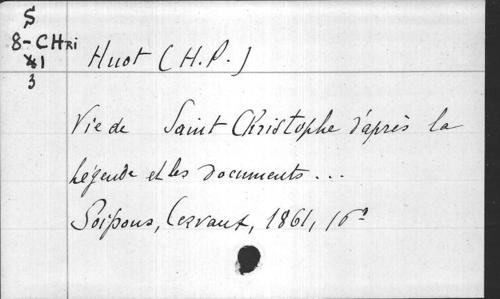 S
8-CHRI
41
3
Huot (H.P.)
Vie de Saint Christophe d'après la
légende et les documents...
Soissons, Cervaux, 1861, 16°